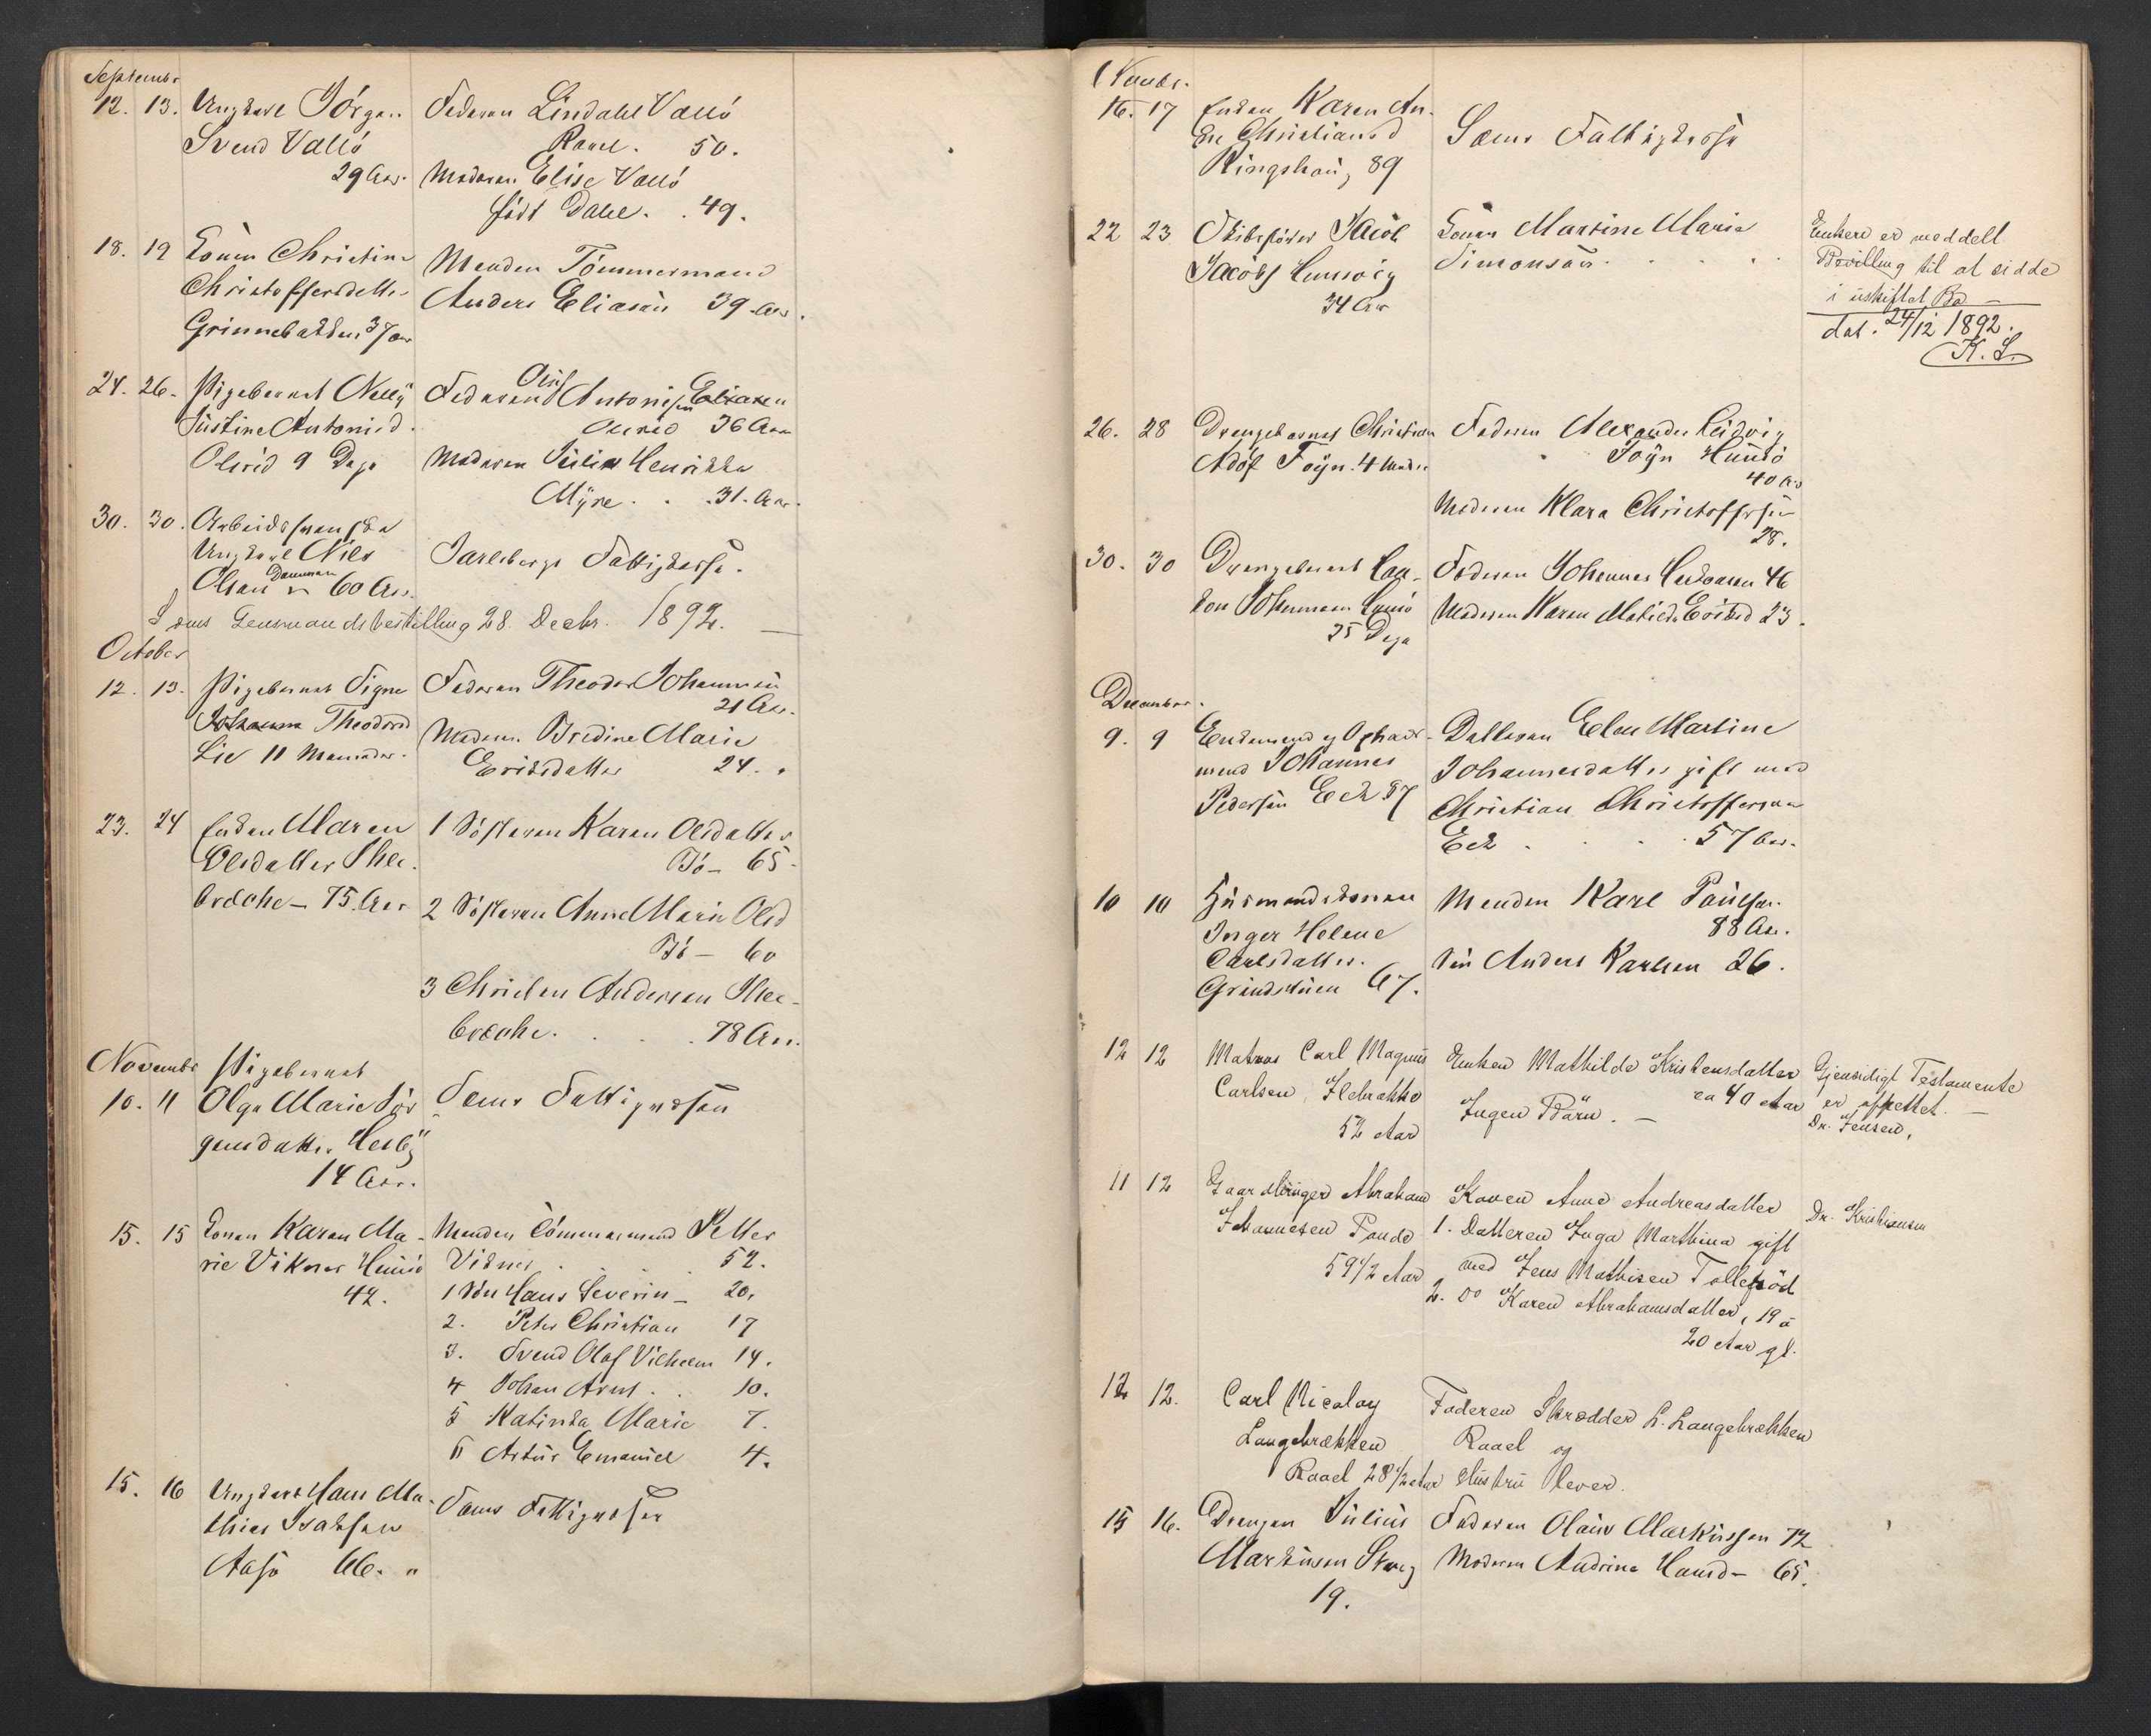 September
12. 13. Ungkarl Jörgen Faderen Lindahl Vallö
Svend Vallö Raael. 50.
29 Aar. Moderen Elise Vallö
född Dahl. . 49.
18. 19 Konen Christine Manden Tömmermand
Christoffersdatter Anders Eliasen 39 Aar.
Grinnebakken 37 aar
24. 26. Pigebarnet Nelly Faderen Antonisen Eliasen
Justine Antonisd. 36 Aar
9 Dage Moderen Julie Henrikke
Myre . . 31. Aar.
30. 30. Arbeidsmand
Ungkarl Nils Jarlsbergs Fattigkasse.
Olsen 60 Aar.
Sems Lensmandsbestilling 28. Decbr. 1892.
October
12. 13. Pigebarnet Signe Faderen Theodor Johannesen
21 Aar.
Johanne Theodorsd Moderen Bredine Marie
Lie 11 Maaneder. Eriksdatter 24. "
23. 24 Enken Maren 1 Sösteren Karen Olsdatter
Olsdatter Bö - 65.
75. Aar 2 Sösteren Anne Marie Olsd
Bö - 60
3 Christen Andersen
. . . 78 Aar.
November Pigebarnet
10. 11 Olga Marie Jör Sems Fattigkassen
gensdatter Hesby
14 Aar.
15. 15 Konen Karen Ma- Manden Tömmermand Petter
rie Vikner Husö Vikner . . . 52.
42. 1 Sön Hans Severin - 20.
2. Peter Christian 17
3. Svend Olaf Vilhelm 14.
4 Johan Arnt . . 10.
5 Katinka Marie 7.
6 Artur Emanuel 4.
15. 16 Ungkarl Hans Ma- Sems Fattigkasse
thias Isaksen
66. "
Novbr.
16. 17 Enken Karen An- Sems Fattigkasse
dre Christiansd
Ringshoug 89
22 23 Skibsförer Jacob Konen Martine Marie
Jacobs Simonsen . . . .
34 Aar
Enken er meddelt
Bevilling til at sidde
i uskiftet Bo -
dat. 24/12 1892.
K. L.
26. 28 Drengebarnet Christian Faderen Alexander Ludvig
Adolf Foyn. 4 Mndr. Foyn Husö
40 Aar
Moderen Klara Christoffersen
28.
30. 30 Drengebarnet Haa- Faderen Johannes Haakonsen 46
kon Johannesen Husö Moderen Karen Matilde 23.
25 Dage
December.
9. 9 Enkemand og Opsids- Datteren Elen Martine
mand Johannes Johannesdatter gift med
Pedersen Eek 87 Christian Christoffersen
Eek . . . 57 Aar.
10 10 Husmandskonen Manden Karl Paulsen
Inger Helene 88 Aar.
Carlsdatter Sön Anders Karlsen 26.
67.
12 12 Matros Carl Magnus Enken Mathilde Kristensdatter Gjensidigt Testamente
Carlsen, Ilebrække ca 40 Aar er oprettet. -
52 Aar Ingen Börn. - Dr. Jensen.
11 12 Gaardbruger Abraham Konen Anne Andreasdatter Dr. Kristiansen
Johannesen 1. Datteren Inga Marthina gift
59 1/2 Aar med Jens Mathisen Tolleröd
2. Do Karen Abrahamsdatter, 19 à
20 Aar gl.
12 12. Carl Nicolay Faderen Skrædder L. Langebrækken
Langebrækken Raael og
Raael 28 1/2 Aar Hustru lever.
15 16. Drengen Julius Faderen Olaus Markussen 72
Markussen Moderen Andrine Hansd - 65.
19.